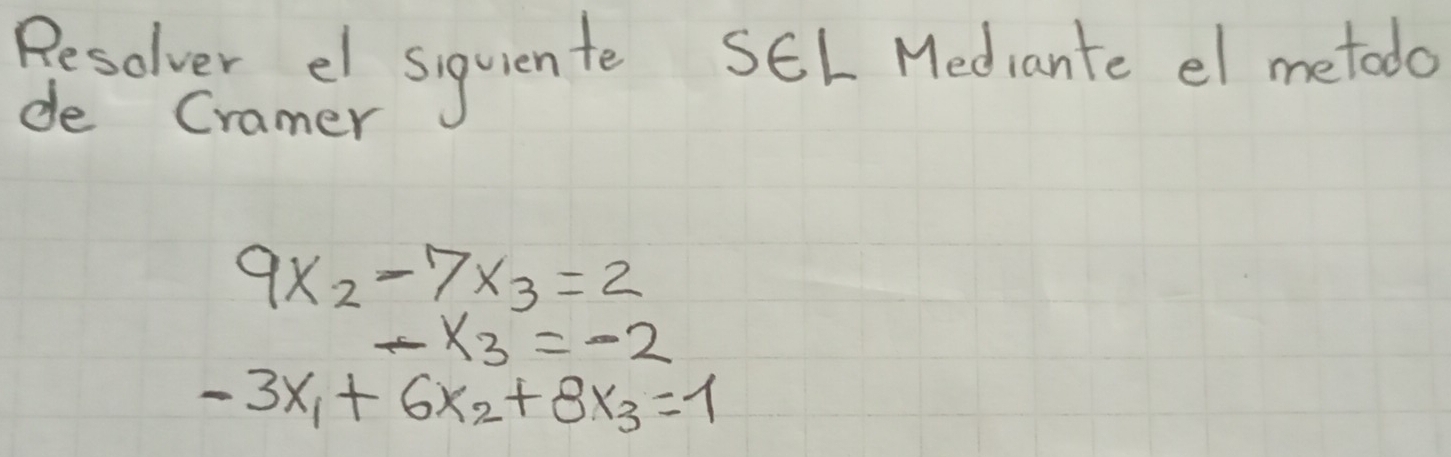 Resolver el siguiente SEL Mediante el metodo
de Cramer
9x₂ - 7x₃ = 2
- x₃ = -2
-3x₁ + 6x₂ + 8x₃ = 1